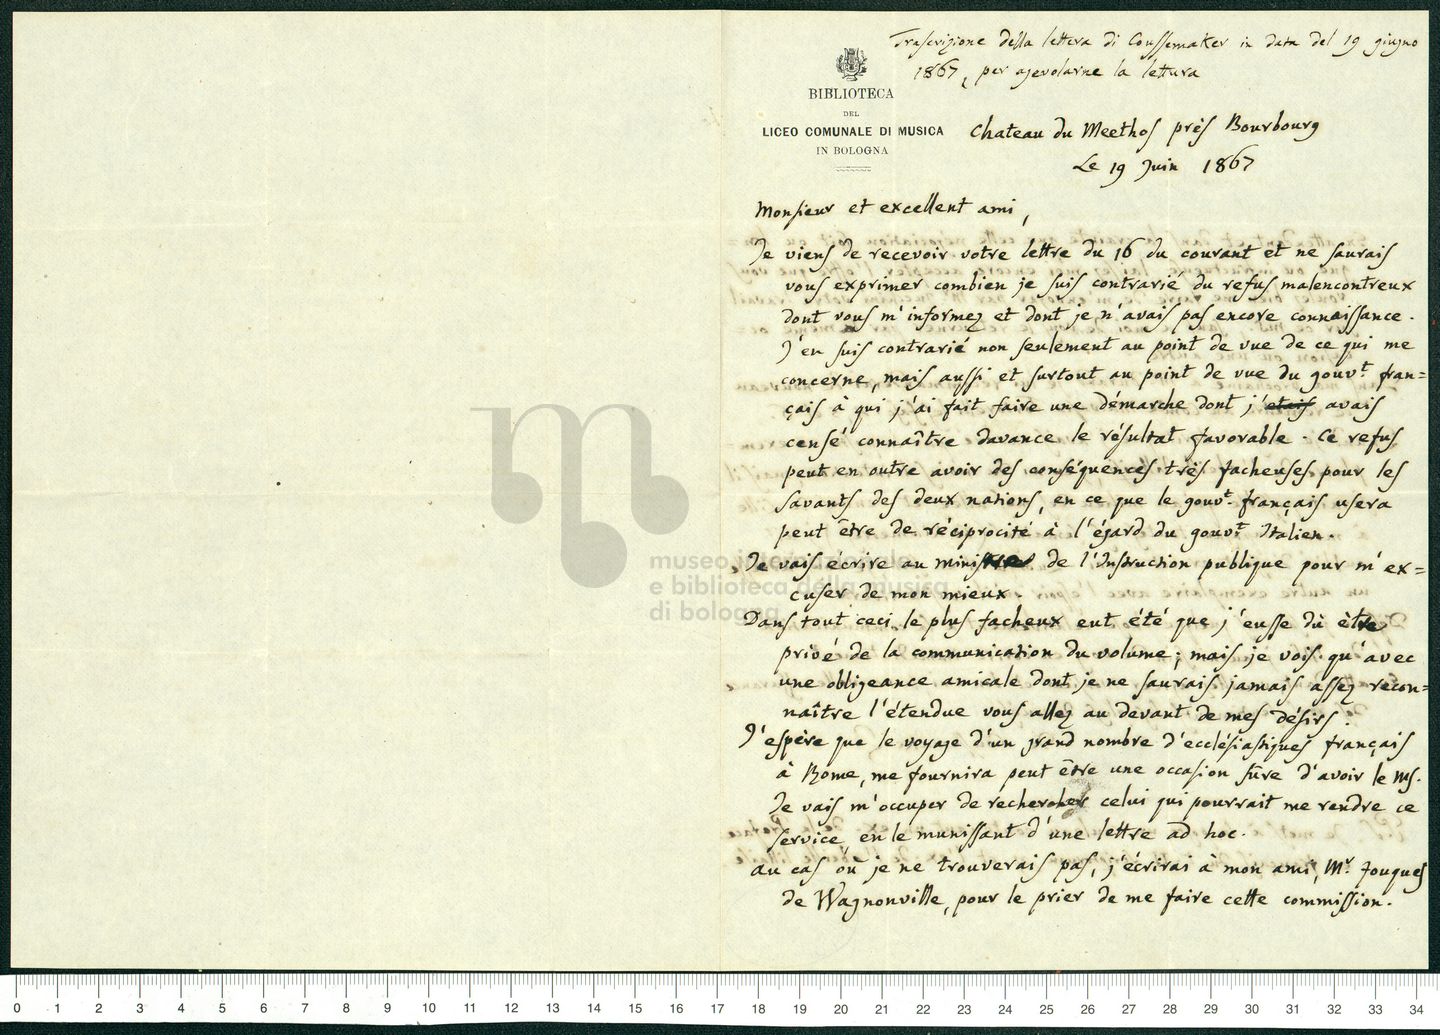 Trascrizione della lettera di Coussemaker in data del 19 giugno
1867, per agevolarne la lettura
BIBLIOTECA
DEL
LICEO COMUNALE DI MUSICA
IN BOLOGNA
Chateau du Meethof près Bourbourg
Le 19 Juin 1867
Monsieur et excellent ami,
Je viens de recevoir votre lettre du 16 du courant et ne saurais
vous exprimer combien je suis contrarié du refus malencontreux
dont vous m'informez et dont je n'avais pas encore connaissance.
J'en suis contrarié non seulement au point de vue de ce qui me
concerne, mais aussi et surtout au point de vue du gouvt. fran=
çais à qui j'ai fait faire une démarche dont j'etais avais
censé connaître davance le résultat favorable. Ce refus
peut en outre avoir des conséquences très facheuses pour les
savants des deux nations, en ce que le gouvt. français usera
peut être de réciprocité à l'égard du gouvt. Italien.
Je vais écrire au ministre de l'Instruction publique pour m'ex=
cuser de mon mieux.
Dans tout ceci le plus facheux eut été que j'eusse dû être
privé de la communication du volume; mais je vois qu'avec
une obligeance amicale dont je ne saurais jamais assez recon=
naître l'étendue vous allez au devant de mes désirs.
J'espère que le voyage d'un grand nombre d'ecclésiastiques français
à Rome, me fournira peut être une occasion sûre d'avoir le Ms.
Je vais m'occuper de rechercher celui qui pourrait me rendre ce
service, en le munissant d'une lettre ad hoc.
au cas où je ne trouverais pas, j'écrirai à mon ami, Mr. Fouques
de Wagnonville, pour le prier de me faire cette commission.
museo internazionale
e biblioteca della musica
di bologna
0 1 2 3 4 5 6 7 8 9 10 11 12 13 14 15 16 17 18 19 20 21 22 23 24 25 26 27 28 29 30 31 32 33 34